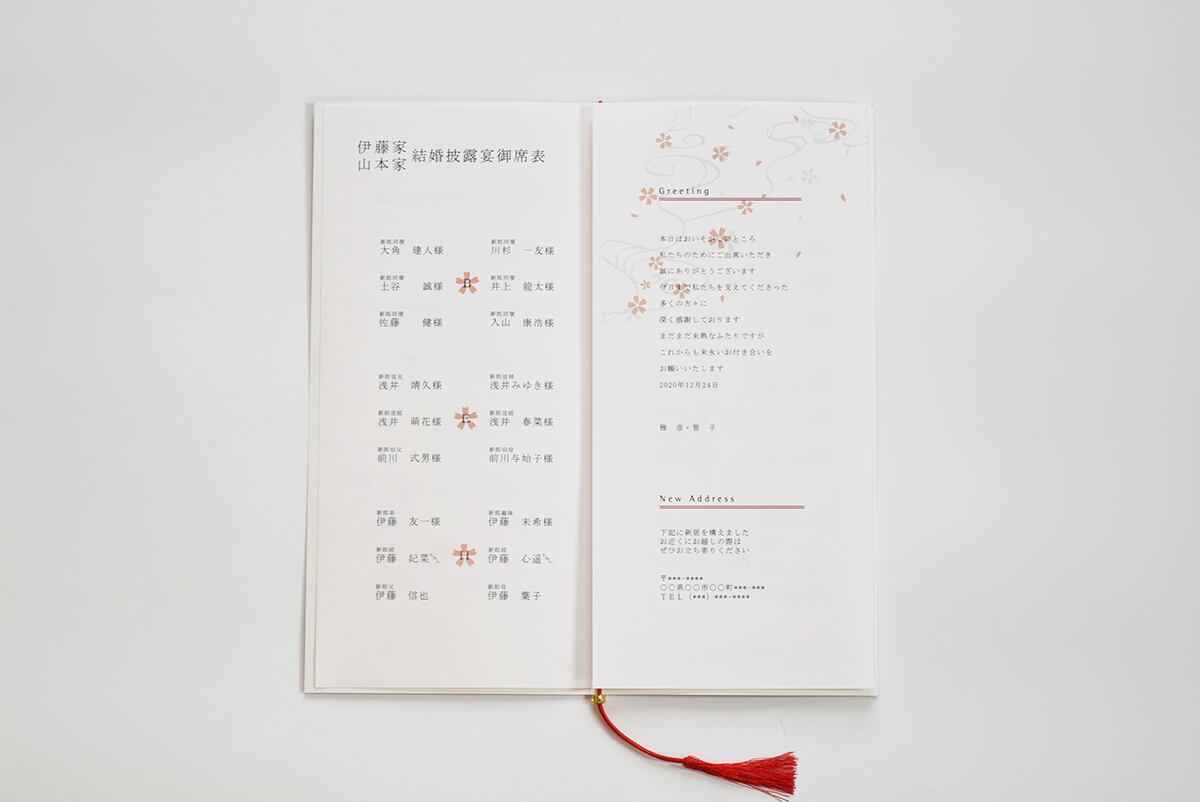 伊藤家
山本家
結婚披露宴御席表
新郎同僚 新郎同僚
大角 建人様 川杉 一友様
新郎同僚 新郎同僚
土谷 誠様 B 井上 龍太様
新郎同僚 新郎同僚
佐藤 健様 入山 康浩様
浅井 靖久様 浅井みゆき様
新郎従姪 新郎従姪
浅井 萌花様 E 浅井 春菜様
新郎伯父 新郎伯母
前川 式男様 前川与始子様
新郎弟 新郎義妹
伊藤 友一様 伊藤 未希様
新郎姪 新郎姪
伊藤 妃菜 H 伊藤 心遥
新郎父 新郎母
伊藤 信也 伊藤 葉子
Greeting
本日はおいそがしいところ
私たちのためにご出席いただき
誠にありがとうございます
今日まで私たちを支えてくださった
多くの方々に
深く感謝しております
まだまだ未熟なふたりですが
これからも末永いお付き合いを
お願いいたします
2020年12月24日
雅 彦・智 子
New Address
下記に新居を構えました
お近くにお越しの際は
ぜひお立ち寄りください
〒***-****
○○県○○市○○町***-***
TEL (***) ***-****